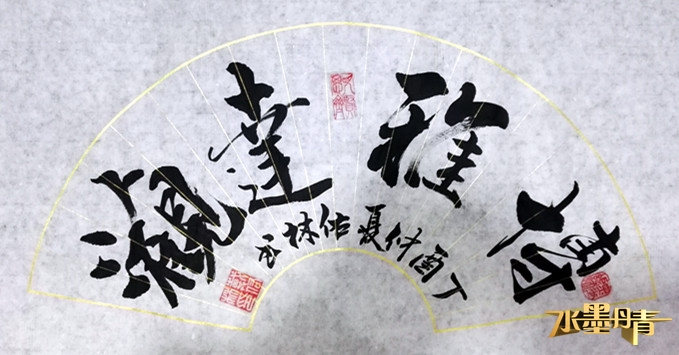 博雅達觀
丁酉仲夏佑林书
水墨丹青